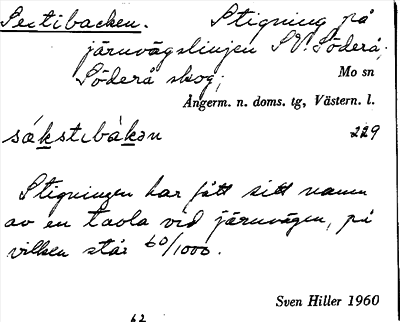 Sextibacken. Stigning på
järnvägslinjen SV. Söderå,
Söderå skog;
Mo sn
Ångerm. n. doms. tg, Västern. l.
sákstıbákən 229
Stigningen har fått sitt namn
av en tavla vid järnvägen, på
vilken står 60/1000.
Sven Hiller 1960
62